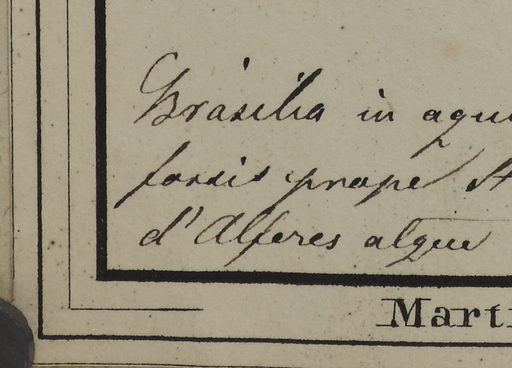 Brasilia in aqu
fossis prope st
d'Alferes atque
Marti